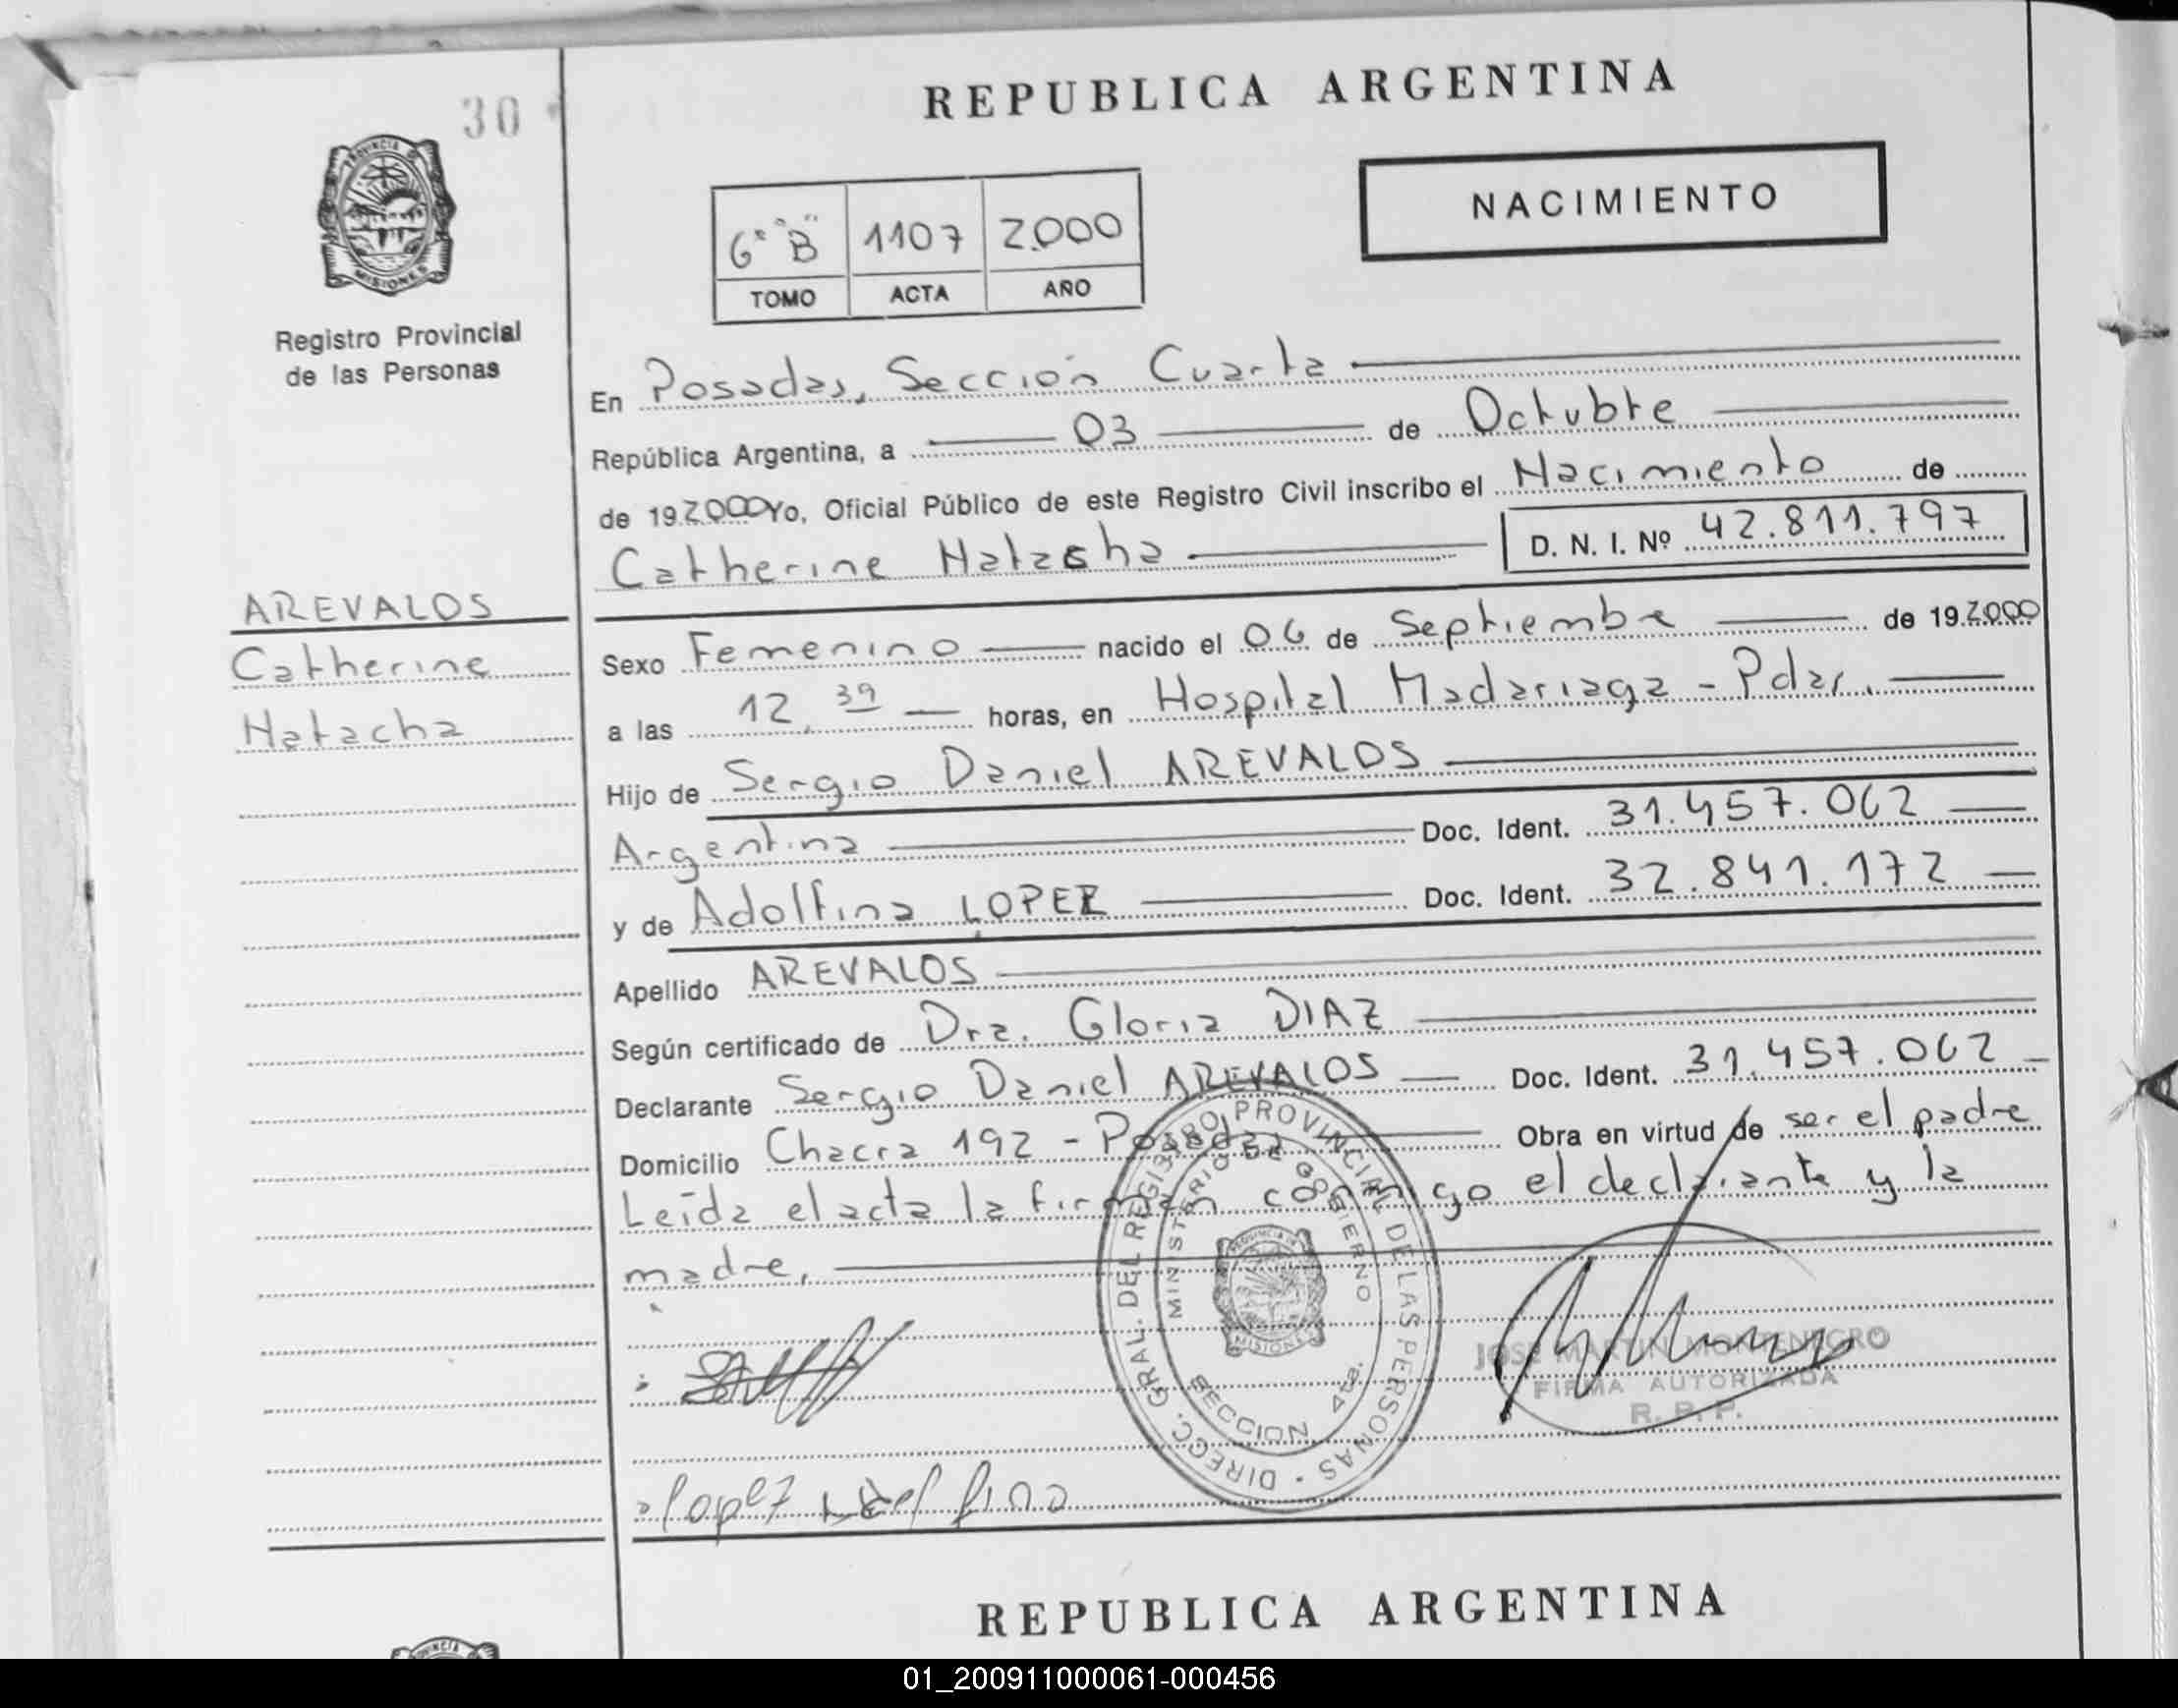 30
PROVINCIA DE
MISIONES
Registro Provincial
de las Personas
REPUBLICA ARGENTINA
NACIMIENTO
6° "B" 1107 2.000
TOMO ACTA AÑO
En Posadas, Sección Cuarta
República Argentina, a 03 de Octubre
de 19 2.000 Yo, Oficial Público de este Registro Civil inscribo el Nacimiento de
Catherine Natasha D. N. I. Nº 42.811.797
AREVALOS
Catherine
Natacha
Sexo Femenino nacido el 06 de Septiembre de 19 2.000
a las 12,39 horas, en Hospital Madariaga - Pdas.
Hijo de Sergio Daniel AREVALOS
Argentina Doc. Ident. 31.457.062
y de Adolfina LOPEZ Doc. Ident. 32.841.172
Apellido AREVALOS
Según certificado de Dra. Gloria DIAZ
Declarante Sergio Daniel AREVALOS Doc. Ident. 31.457.062
Domicilio Chacra 192 - Posadas Obra en virtud de ser el padre
Leída el acta la firman conmigo el declarante y la
madre.
DIRECC. GRAL. DEL REGISTRO PROVINCIAL DE LAS PERSONAS
MINISTERIO DE GOBIERNO
PROVINCIA DE
MISIONES
SECCION 4ta.
JOSE MARTIN MONTENEGRO
FIRMA AUTORIZADA
R. P. P.
Lopez
REPUBLICA ARGENTINA
01_200911000061-000456